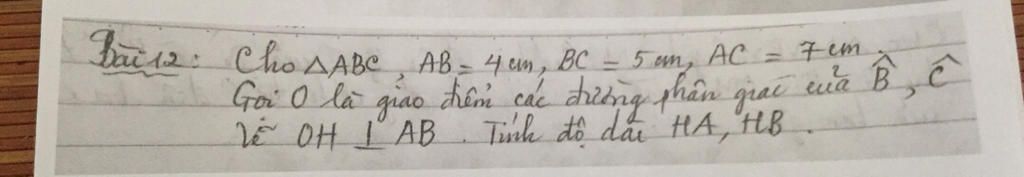 Bài 12: Cho △ABC, AB = 4 cm, BC = 5 cm, AC = 7 cm.
Gọi O là giao điểm các đường phân giác của B̂, Ĉ
Vẽ OH ⊥ AB. Tính độ dài HA, HB.